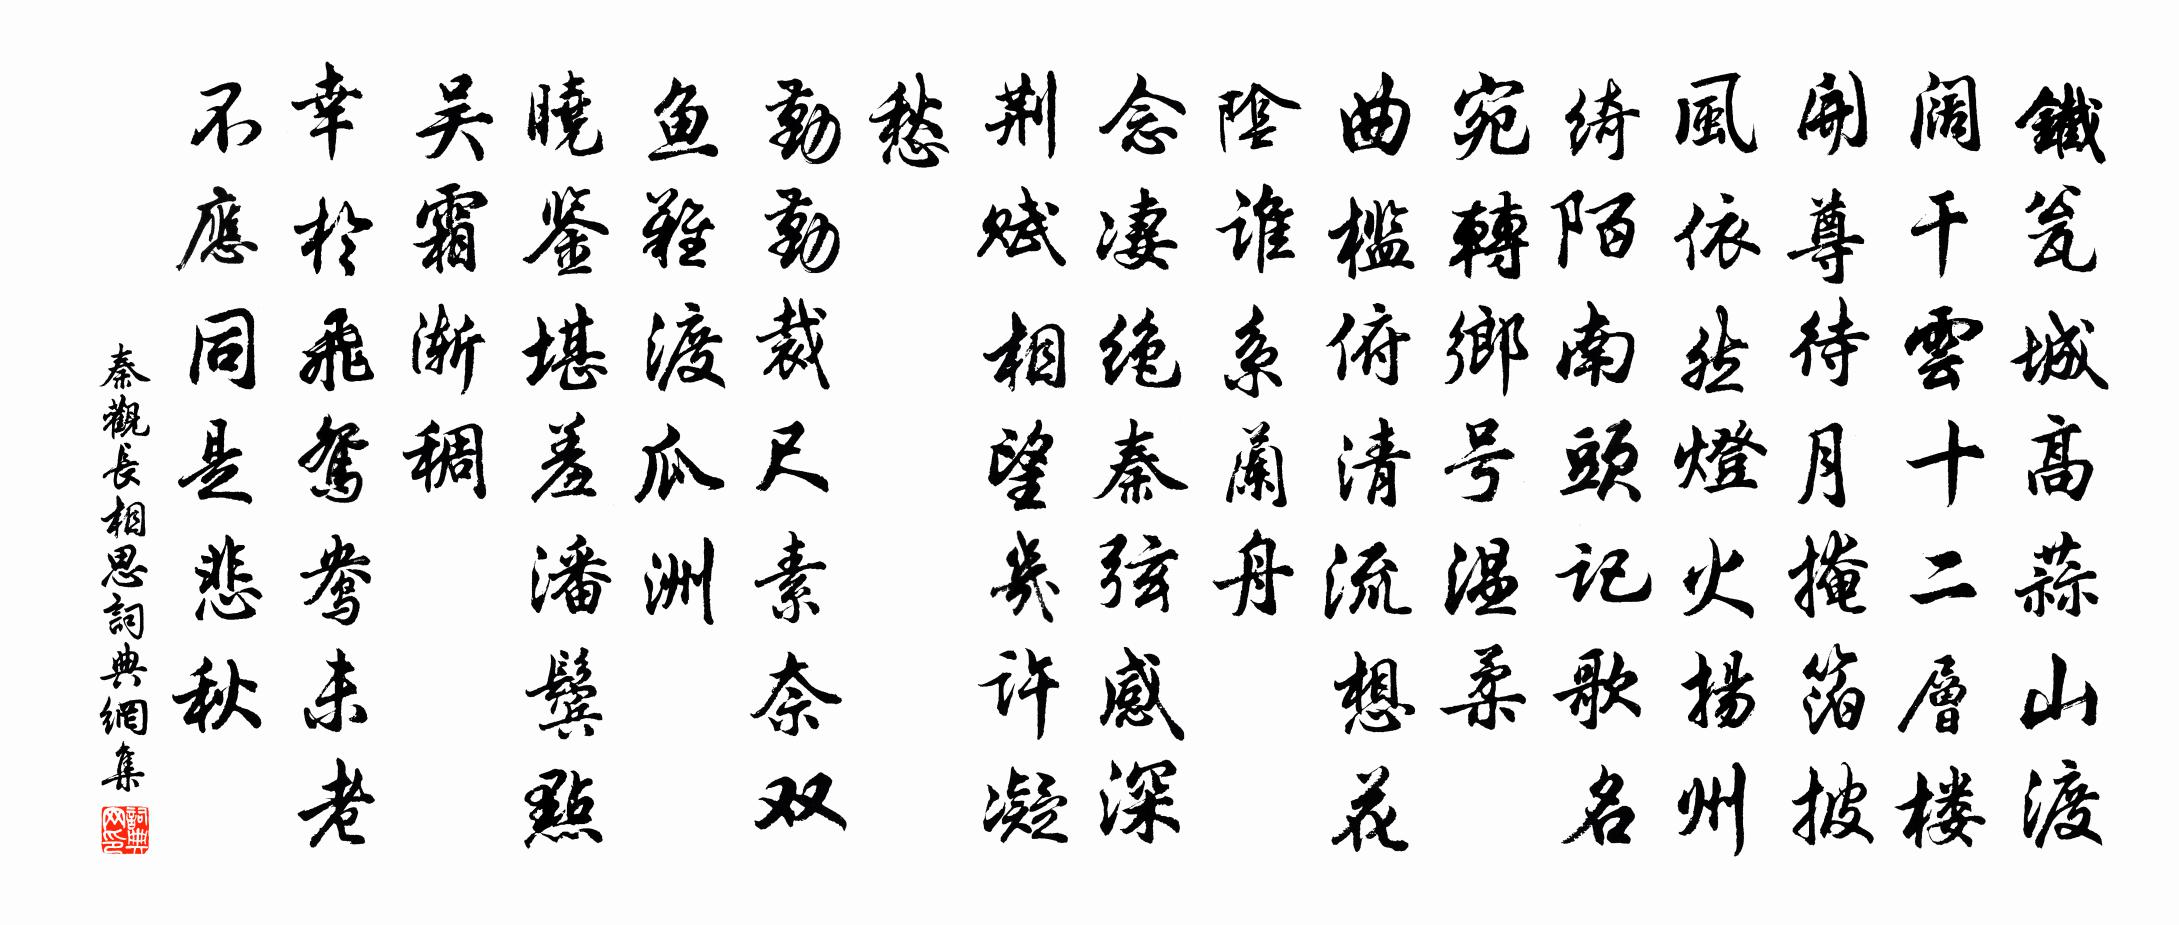 鐵瓮城高蒜山渡
阔干雲十二層楼
開尊待月掩箔披
風依然燈火揚州
绮陌南頭記歌名
宛轉鄉号温柔
曲檻俯清流想花
陰谁系蘭舟
念凄绝秦弦感深
荆赋相望幾许凝
愁
勤勤裁尺素奈双
鱼難渡瓜洲
曉鉴堪羞潘鬓點
吴霜渐稠
幸於飛鴛鸯未老
不應同是悲秋
秦觀長相思詞典網集
詞典网印